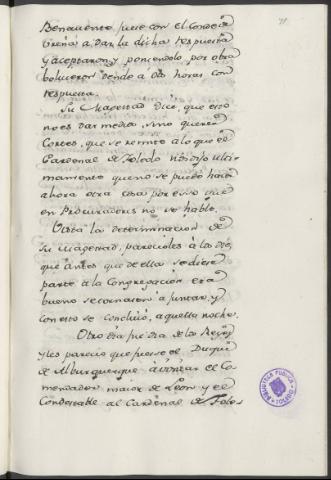 71
Benavente, fuese con el Conde de
Ureña a dar la dicha respuesta
y aceptaron, y poniendolo por obra
bolvieron dende a dos horas con
respuesta.
Su Magestad dice, que esto
no es dar media, sino querer
Cortes, que se remite a lo que el
Cardenal de Toledo nos dijo ulti-
mamente que no se puede hacer
ahora otra cosa por eso que
en Procuradores no se hable.
Vista la determinacion de
su Magestad, pareciales a los dos,
que antes que de ella se diere
parte a la Congregación era
bueno se tornasen a juntar, y
con esto se concluió, aquella noche.
Otro dia, fue dia de los Reyes
y les pareció que fuese el Duque
de Alburquerque a visitar el Co-
mendador maior de Leon y el
Condestable al Cardenal de Tole-
BIBLIOTECA PUBLICA
TOLEDO